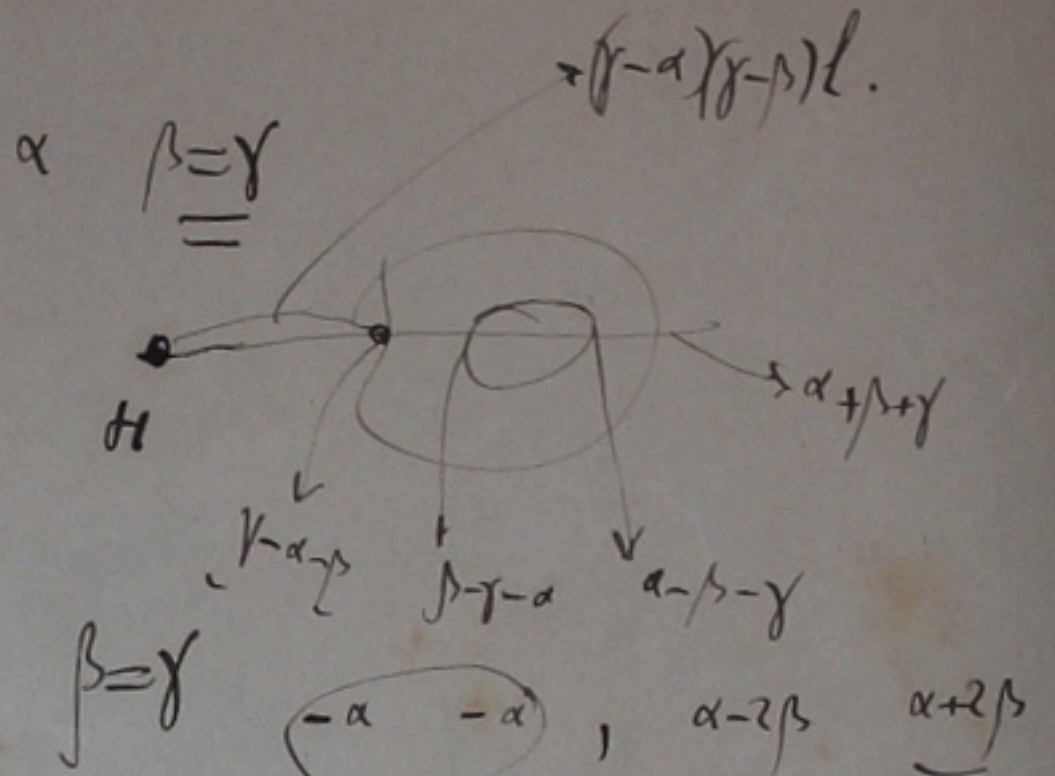 (γ-α)(γ-β)l.
α β=γ
H
α+β+γ
γ-α-β
β-γ-α
α-β-γ
β=γ
-α -α , α-2β α+2β